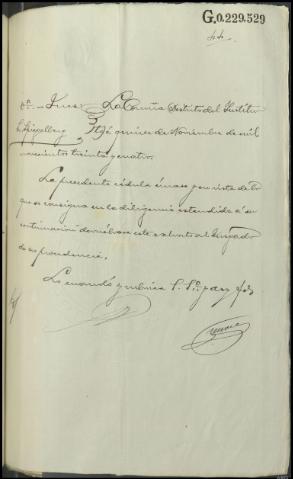 G.0.229.529
44.
Juez La Coruña Distrito del Institu-
Sr. Spiegelberg to á quince de Noviembre de mil
novecientos treinta y cuatro.
La precedente cédula únase y en vista de lo
que se consigna en la diligencia extendida á su
continuación devuélvase este exhorto al Juzgado
de su procedencia.
Lo mandó y rubrica S. Sª. y doy fé